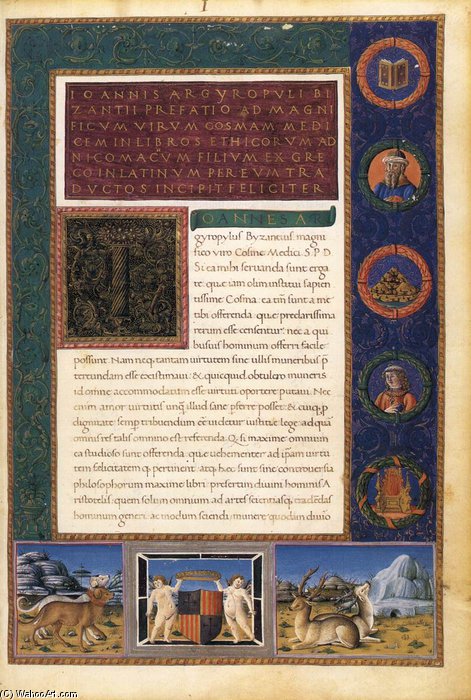 I
IOANNIS ARGYROPVLI BI
ZANTII PREFATIO AD MAGNI
FICVM VIRVM COSMAM MEDI
CEM IN LIBROS ETHICORVM AD
NICOMACVM FILIVM EX GRE
CO IN LATINVM PER EVM TRA
DVCTOS INCIPIT FELICITER
IOANNES AR
gyropylus Byzantius magni
fico viro Cosme Medici S P D
Si ea mihi seruanda sunt erga
te quae iam olim institui sapien
tissime Cosma ea tibi sunt a me
offerenda que preclarissima
rerum esse censentur nec a qui
busuis hominum offerri facile
possunt. Nam neq. tantam virtutem sine ullis muneribus
tereundam esse existimaui & quicquid obtulero muneris
id omne accommodatum esse virtuti oportere putaui. Nec
enim amor virtutis unq. illud sane posset &
dignitate semp tribuendum videtur iustitie lege ad qua
omnis res talis omnino est referenda. maxime omnium
ea studioso sunt offerenda que uehementer ad virtu
tem felicitatem q. pertinent atq. hec sunt sine controuersia
philosophorum maxime libri presertim diuini hominis A
ristotelis quem solum omnium ad artes scientiasq. tradendas
hominum generi ac modum sciendi munere quodam diuino
(C) WahooArt.com